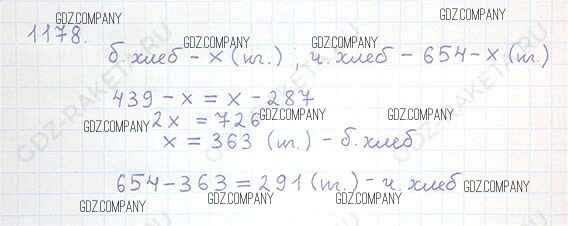 1178.
GDZ.COMPANY GDZ.COMPANY GDZ.COMPANY
б. хлеб - x (кг.) ; ч. хлеб - 654 - x (кг.)
439 - x = x - 287
GDZ.COMPANY 2x = 726 GDZ.COMPANY GDZ.COMPANY
x = 363 (кг.) - б. хлеб
654 - 363 = 291 (кг.) - ч. хлеб GDZ.COMPANY
GDZ.COMPANY GDZ.COMPANY GDZ.COMPANY
GDZ-RAKETA.RU